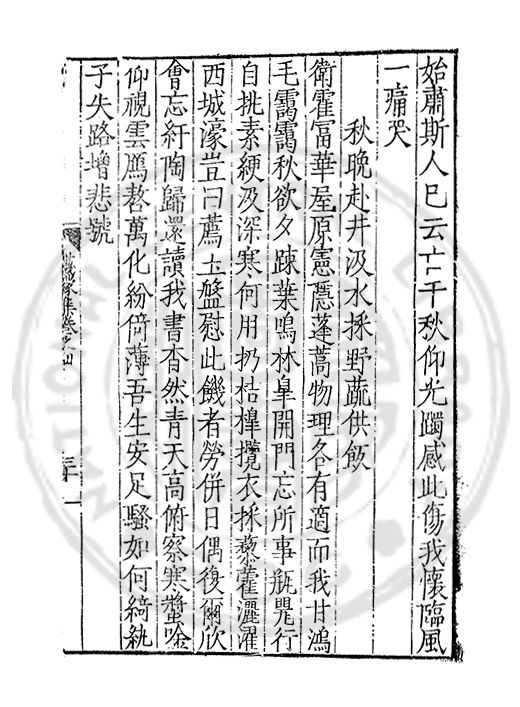 始肅斯人已云亡千秋仰光躅感此傷我懷臨風
一痛哭
秋晚赴井汲水採野蔬供飲
衛霍富華屋原憲隱蓬蒿物理各有適而我甘鴻
毛靄靄秋欲夕踈葉鳴林臯開門忘所事瓶罌行
自挑素綆汲深寒何用扔桔橰攬衣採藜藿灑濯
西城濠豈曰薦玉盤慰此饑者勞併日偶復爾欣
會忘紆陶歸還讀我書杳然青天高俯察寒螿唫
仰視雲鴈嗸萬化紛倚薄吾生安足騷如何綺紈
子失路增悲號
集卷之四